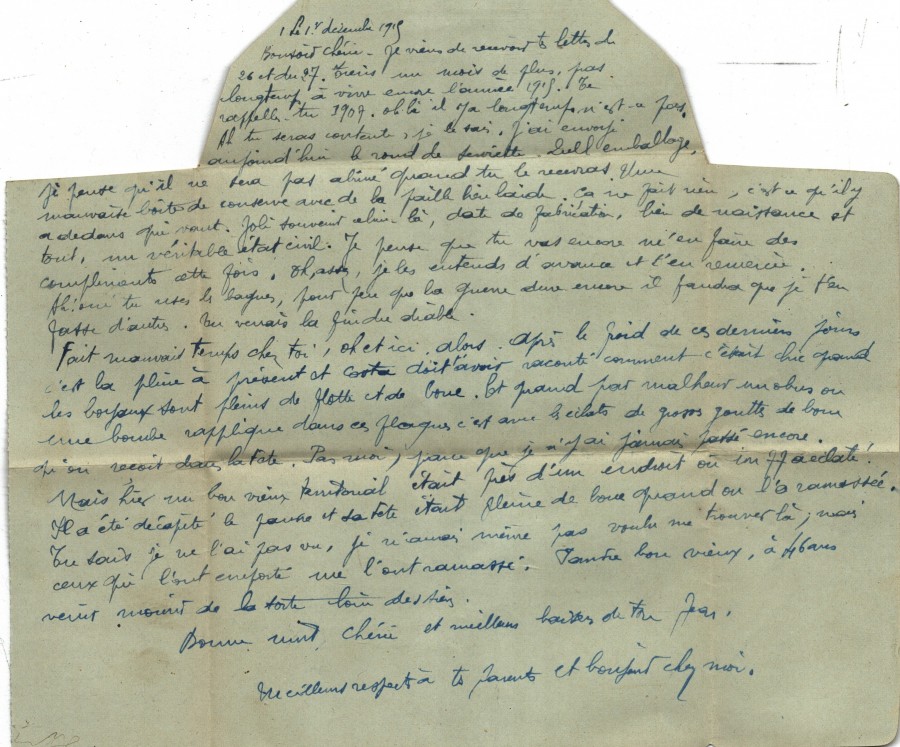 Le 1er décembre 1915
Bonsoir Chérie - Je viens de recevoir ts lettres du
26 et du 27. Tiens un mois de plus, pas
longtemps à vivre encore l'année 1915. Te
rappelles-tu 1909. oh là il y a longtemps n'est-ce pas.
Ah tu seras contente, je le sais, j'ai envoyé
aujourd'hui le rond de serviette. Quel emballage,
je pense qu'il ne sera pas abîmé quand tu le recevras. Une
mauvaise boîte de conserve avec de la paille bien laide, ça ne fait rien, c'est ce qu'il y
a dedans qui vaut. Joli souvenir celui là, date de fabrication, lieu de naissance et
tout, un véritable état civil. Je pense que tu vas encore m'en faire des
compliments cette fois. Oh, assez, je les entends d'avance et t'en remercie.
Ah! oui tu uses ls bagues, pour peu que la guerre dure encore il faudra que je t'en
fasse d'autres. Tu verrais la fin du diable.
Fait mauvais temps chez toi, oh et ici alors. Après le froid de ces derniers jours
c'est la pluie à présent et doit t'avoir raconté comment c'était chic quand
les boyaux sont pleins de flotte et de boue. Et quand par malheur un obus ou
une bombe rapplique dans ces flaques c'est avec ls éclats de grosses gouttes de boue
qu'on reçoit dans la tête. Pas moi, parce que je n'y ai jamais passé encore.
Mais hier un bon vieux territorial était près d'un endroit où un 77 a éclaté!
Il a été décapité le pauvre et sa tête était pleine de boue quand on l'a ramassée.
Tu sais je ne l'ai pas vu, je n'aurais même pas voulu me trouver là; mais
ceux qui l'ont emporté me l'ont ramassé. Pauvre bon vieux, à 46 ans
venir mourir de la sorte loin des siens.
Bonne nuit Chérie et meilleurs baisers de ton Jean.
Meilleurs respects à ts parents et bonjour chez moi.